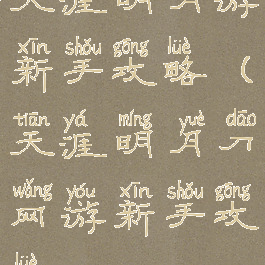 天涯明月游
xīn shǒu gōng lüè
新手攻略(
tiān yá míng yuè dāo
天涯明月刀
wǎng yóu xīn shǒu gōng
网游新手攻
lüè